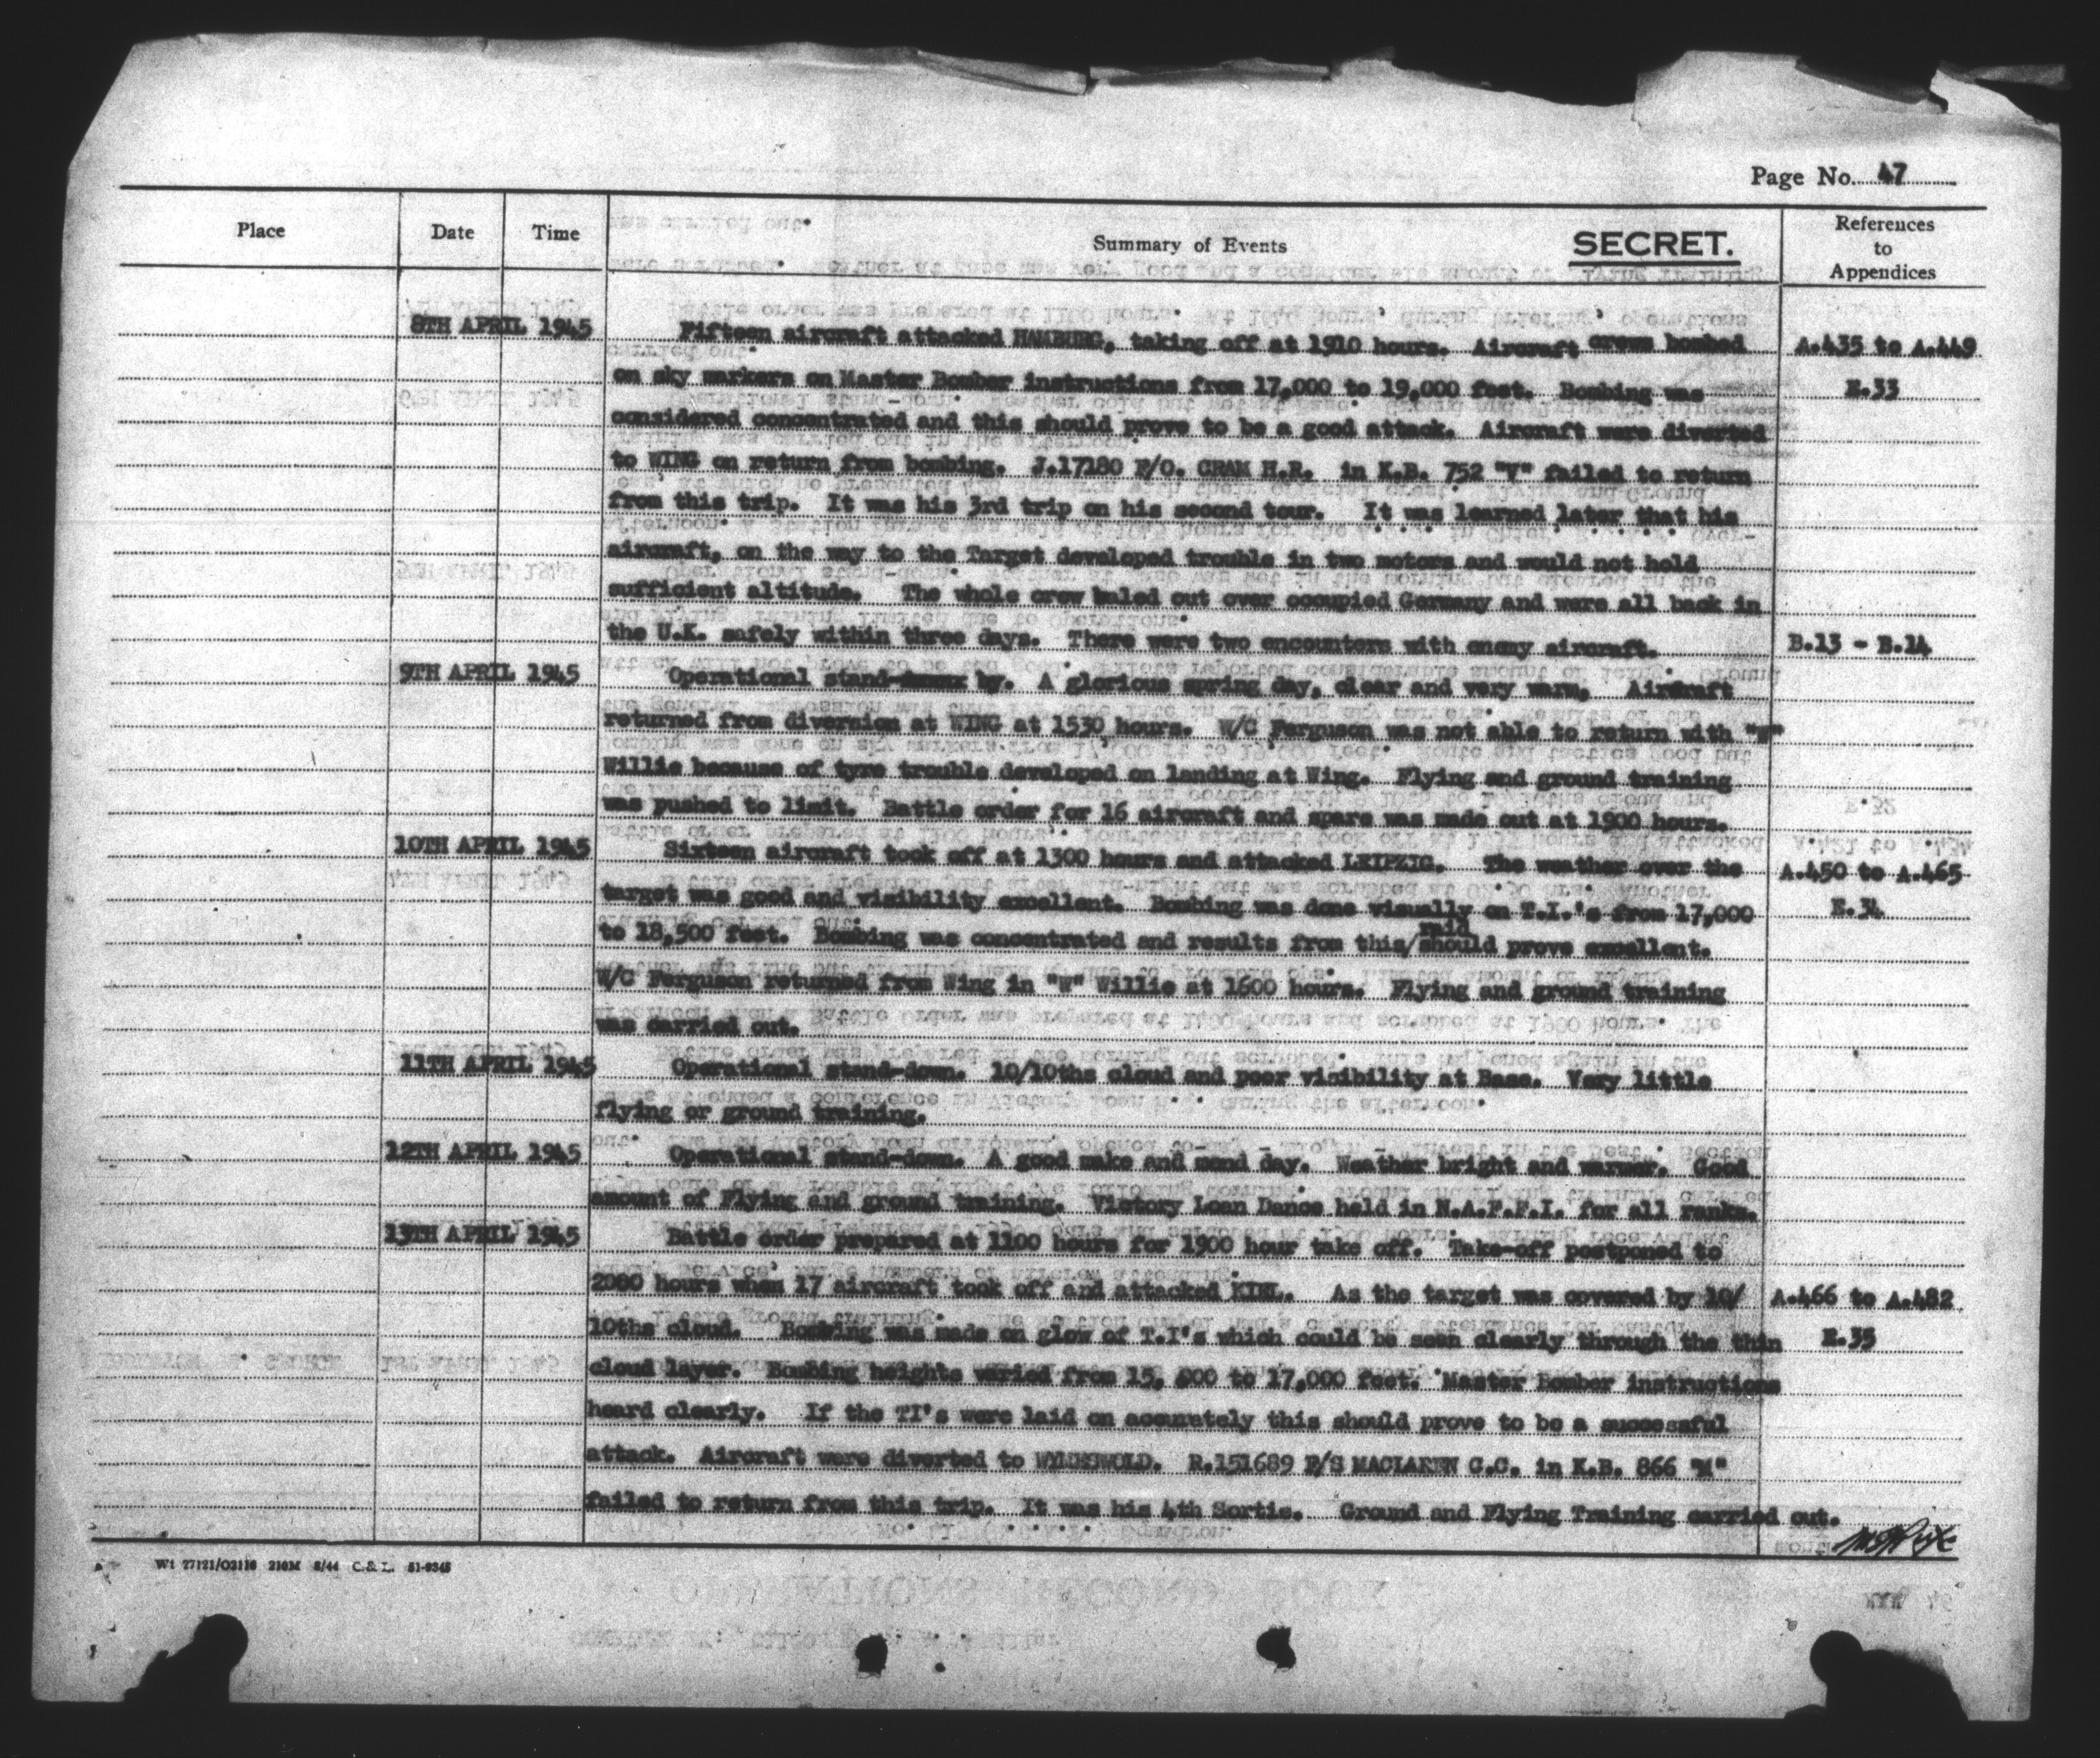 Page No. 47
Place
Date
Time
Summary of Events
SECRET.
References
to
Appendices
8TH APRIL 1945 Fifteen aircraft attacked HAMBURG, taking off at 1910 hours. Aircraft crews bombed A.435 to A.449
on sky markers on Master Bomber instructions from 17,000 to 19,000 feet. Bombing was E.33
considered concentrated and this should prove to be a good attack. Aircraft were diverted
to WING on return from bombing. J.17180 F/O. CRAM H.R. in K.B. 752 "V" failed to return
from this trip. It was his 3rd trip on his second tour. It was learned later that his
aircraft, on the way to the Target developed trouble in two motors and would not hold
sufficient altitude. The whole crew baled out over occupied Germany and were all back in
the U.K. safely within three days. There were two encounters with enemy aircraft. B.13 - B.14
9TH APRIL 1945 Operational stand- by. A glorious spring day, clear and very warm, Aircraft
returned from diversion at WING at 1530 hours. W/C Ferguson was not able to return with "W"
Willie because of tyre trouble developed on landing at Wing. Flying and ground training
was pushed to limit. Battle order for 16 aircraft and spare was made out at 1900 hours.
10TH APRIL 1945 Sixteen aircraft took off at 1300 hours and attacked LEIPZIG. The weather over the A.450 to A.465
target was good and visibility excellent. Bombing was done visually on T.I.'s from 17,000 E.34
raid
to 18,500 feet. Bombing was concentrated and results from this/should prove excellent.
W/C Ferguson returned from Wing in "W" Willie at 1600 hours. Flying and ground training
was carried out.
11TH APRIL 1945 Operational stand-down. 10/10ths cloud and poor visibility at Base. Very little
flying or ground training.
12TH APRIL 1945 Operational stand-down. A good make and mend day. Weather bright and warmer. Good
amount of Flying and ground training. Victory Loan Dance held in N.A.F.F.I. for all ranks.
13TH APRIL 1945 Battle order prepared at 1100 hours for 1900 hour take off. Take-off postponed to
2000 hours when 17 aircraft took off and attacked KIEL. As the target was covered by 10/ A.466 to A.482
10ths cloud. Bombing was made on glow of T.I's which could be seen clearly through the thin E.35
cloud layer. Bombing heights varied from 15, 000 to 17,000 feet. Master Bomber instructions
heard clearly. If the TI's were laid on accurately this should prove to be a successful
attack. Aircraft were diverted to WYMESWOLD. R.151689 F/S MACLAREN C.C. in K.B. 866 "M"
failed to return from this trip. It was his 4th Sortie. Ground and Flying Training carried out.
Wt 27121/O2116 210M 8/44 C.&L. 51-9345